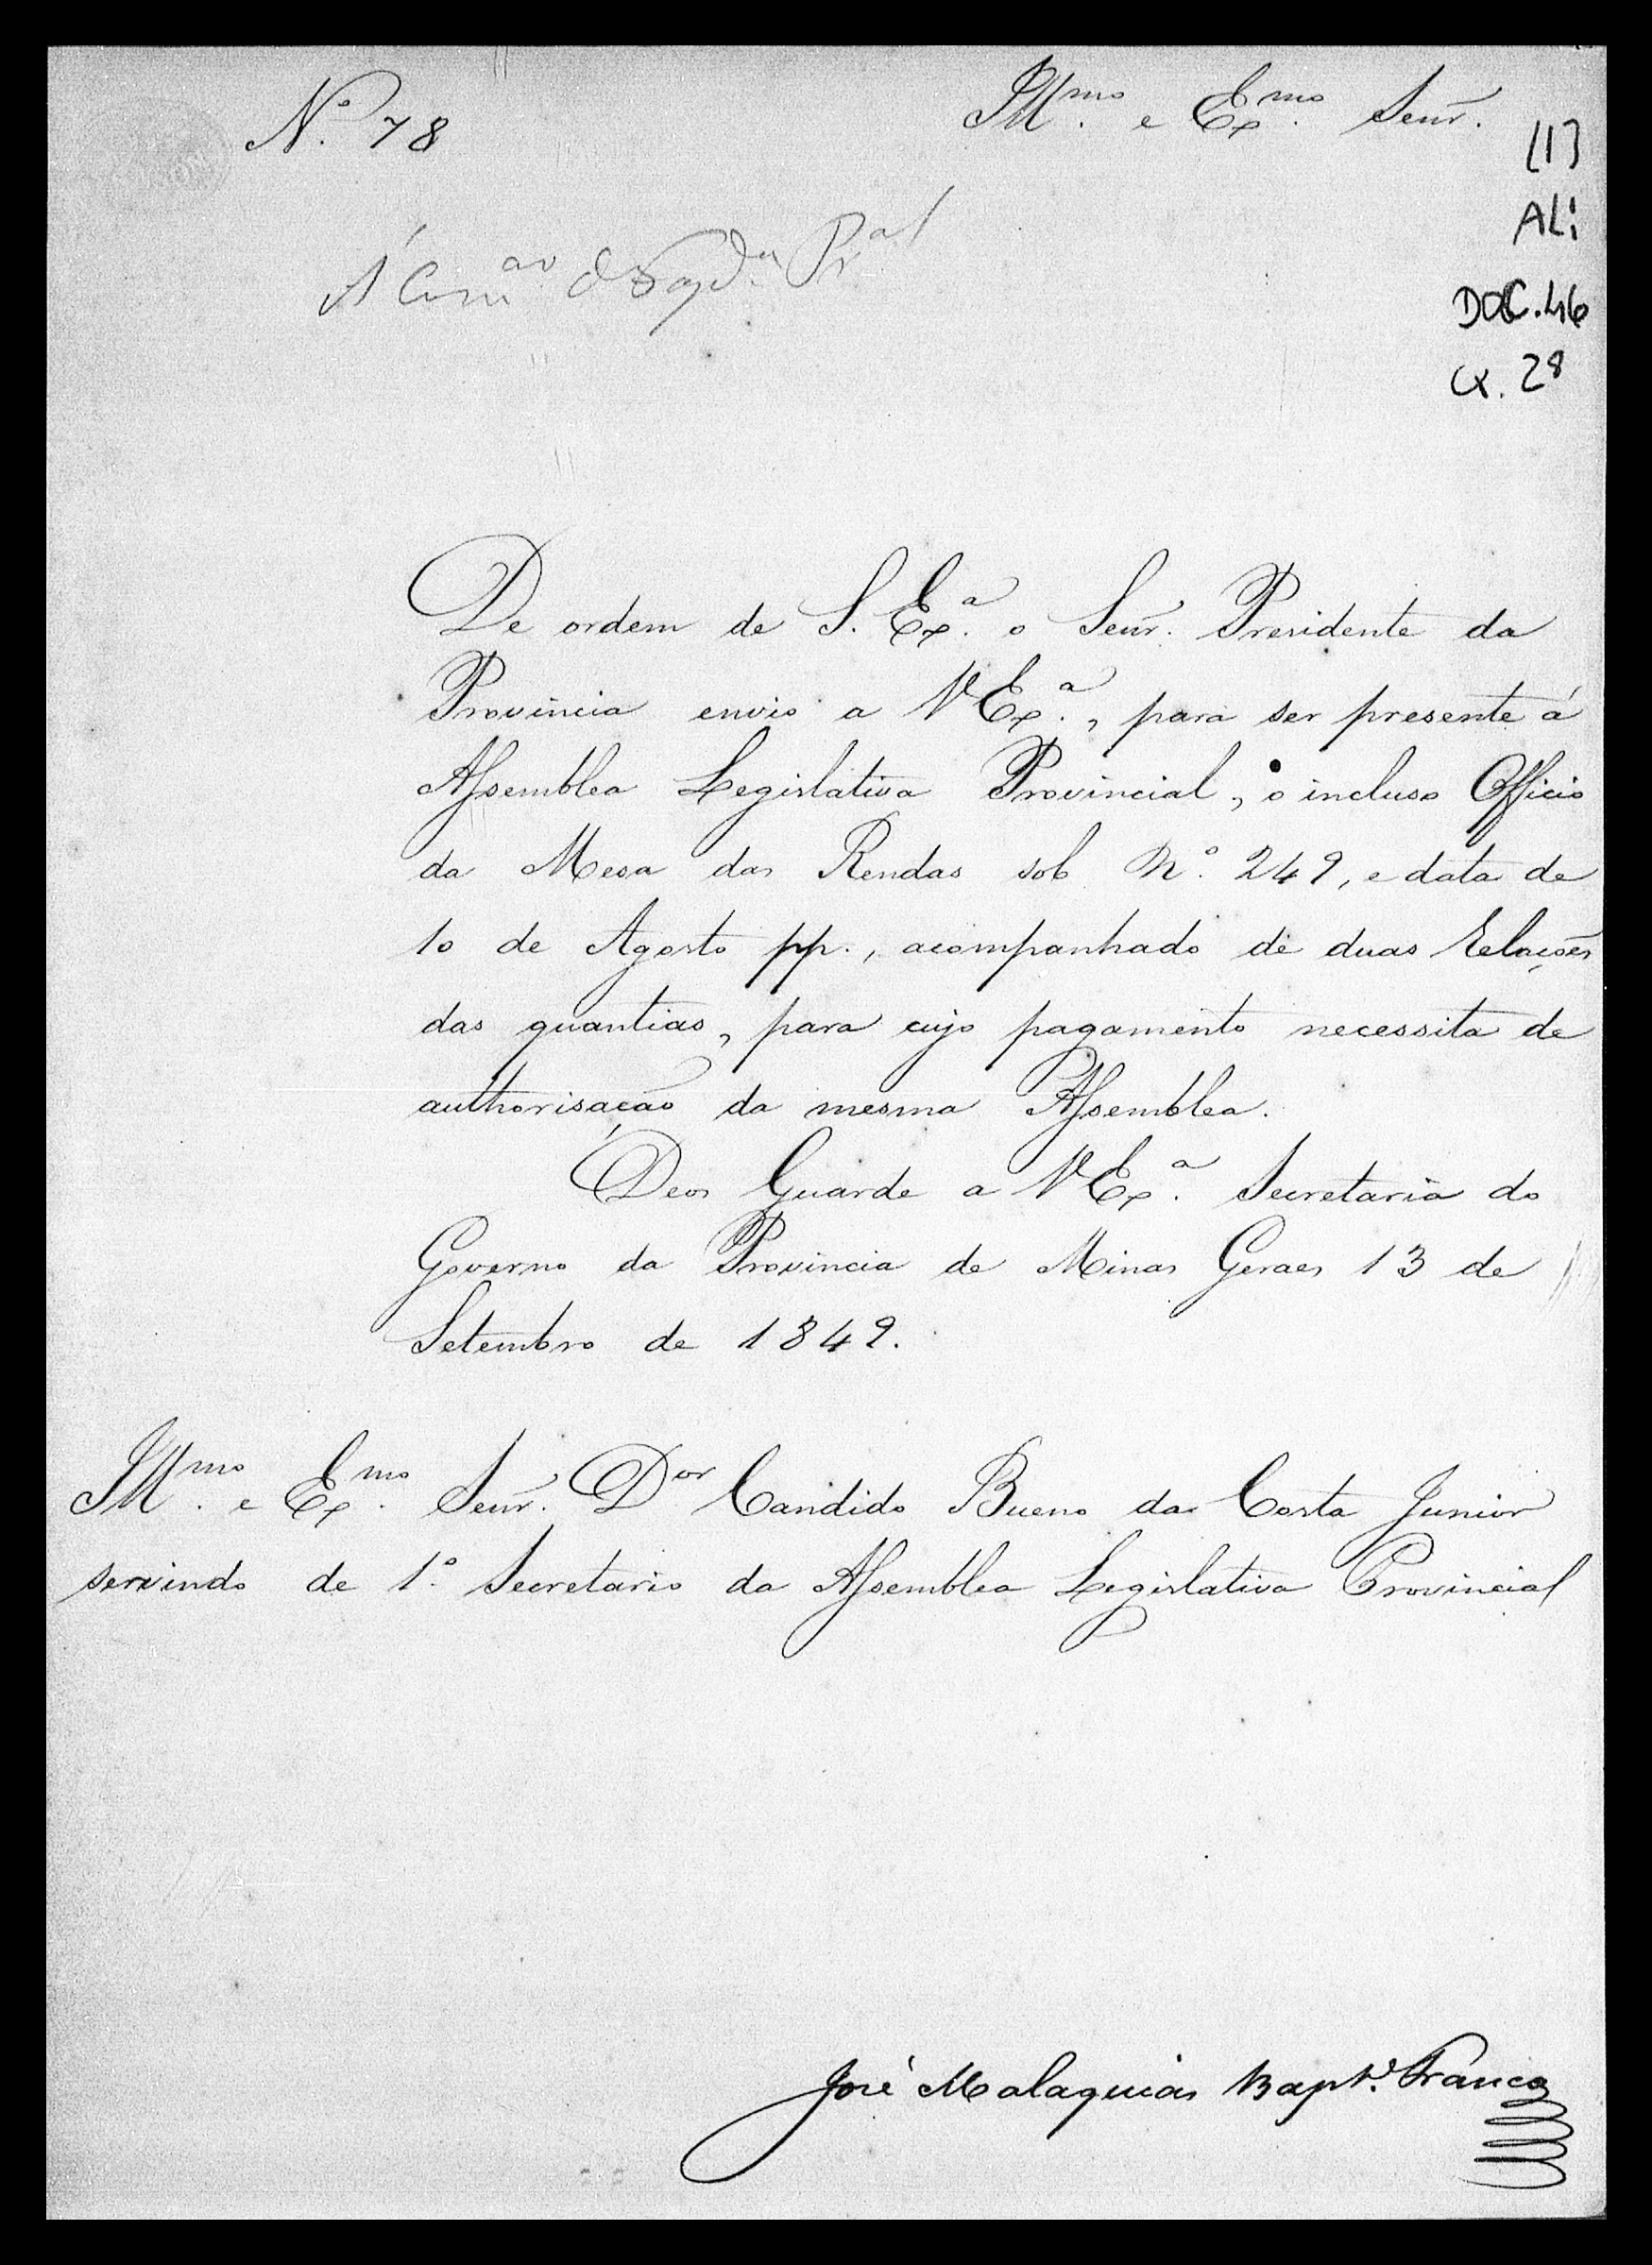 Nº. 78
Illmo. e Exmo. Senr.
[1]
AL:
DOC. 46
CX. 28
Á Comão. d Fazda. Pral
De ordem de S. Exª. o Senr. Presidente da
Provincia envio a V Exª., para ser presente á
Assemblea Legislativa Provincial, o incluso Officio
da Mesa das Rendas sob Nº. 249, e data de
10 de Agosto pp., acompanhado de duas Relações
das quantias, para cujo pagamento necessita de
authorisação da mesma Assemblea.
Deos Guarde a V Exª. Secretaria do
Governo da Provincia de Minas Geraes 13 de
Setembro de 1849.
Illmo. e Exmo. Senr. Dor Candido Bueno da Costa Junior
servindo de 1º. Secretario da Assemblea Legislativa Provincial
José Malaquias Bapta. Franco